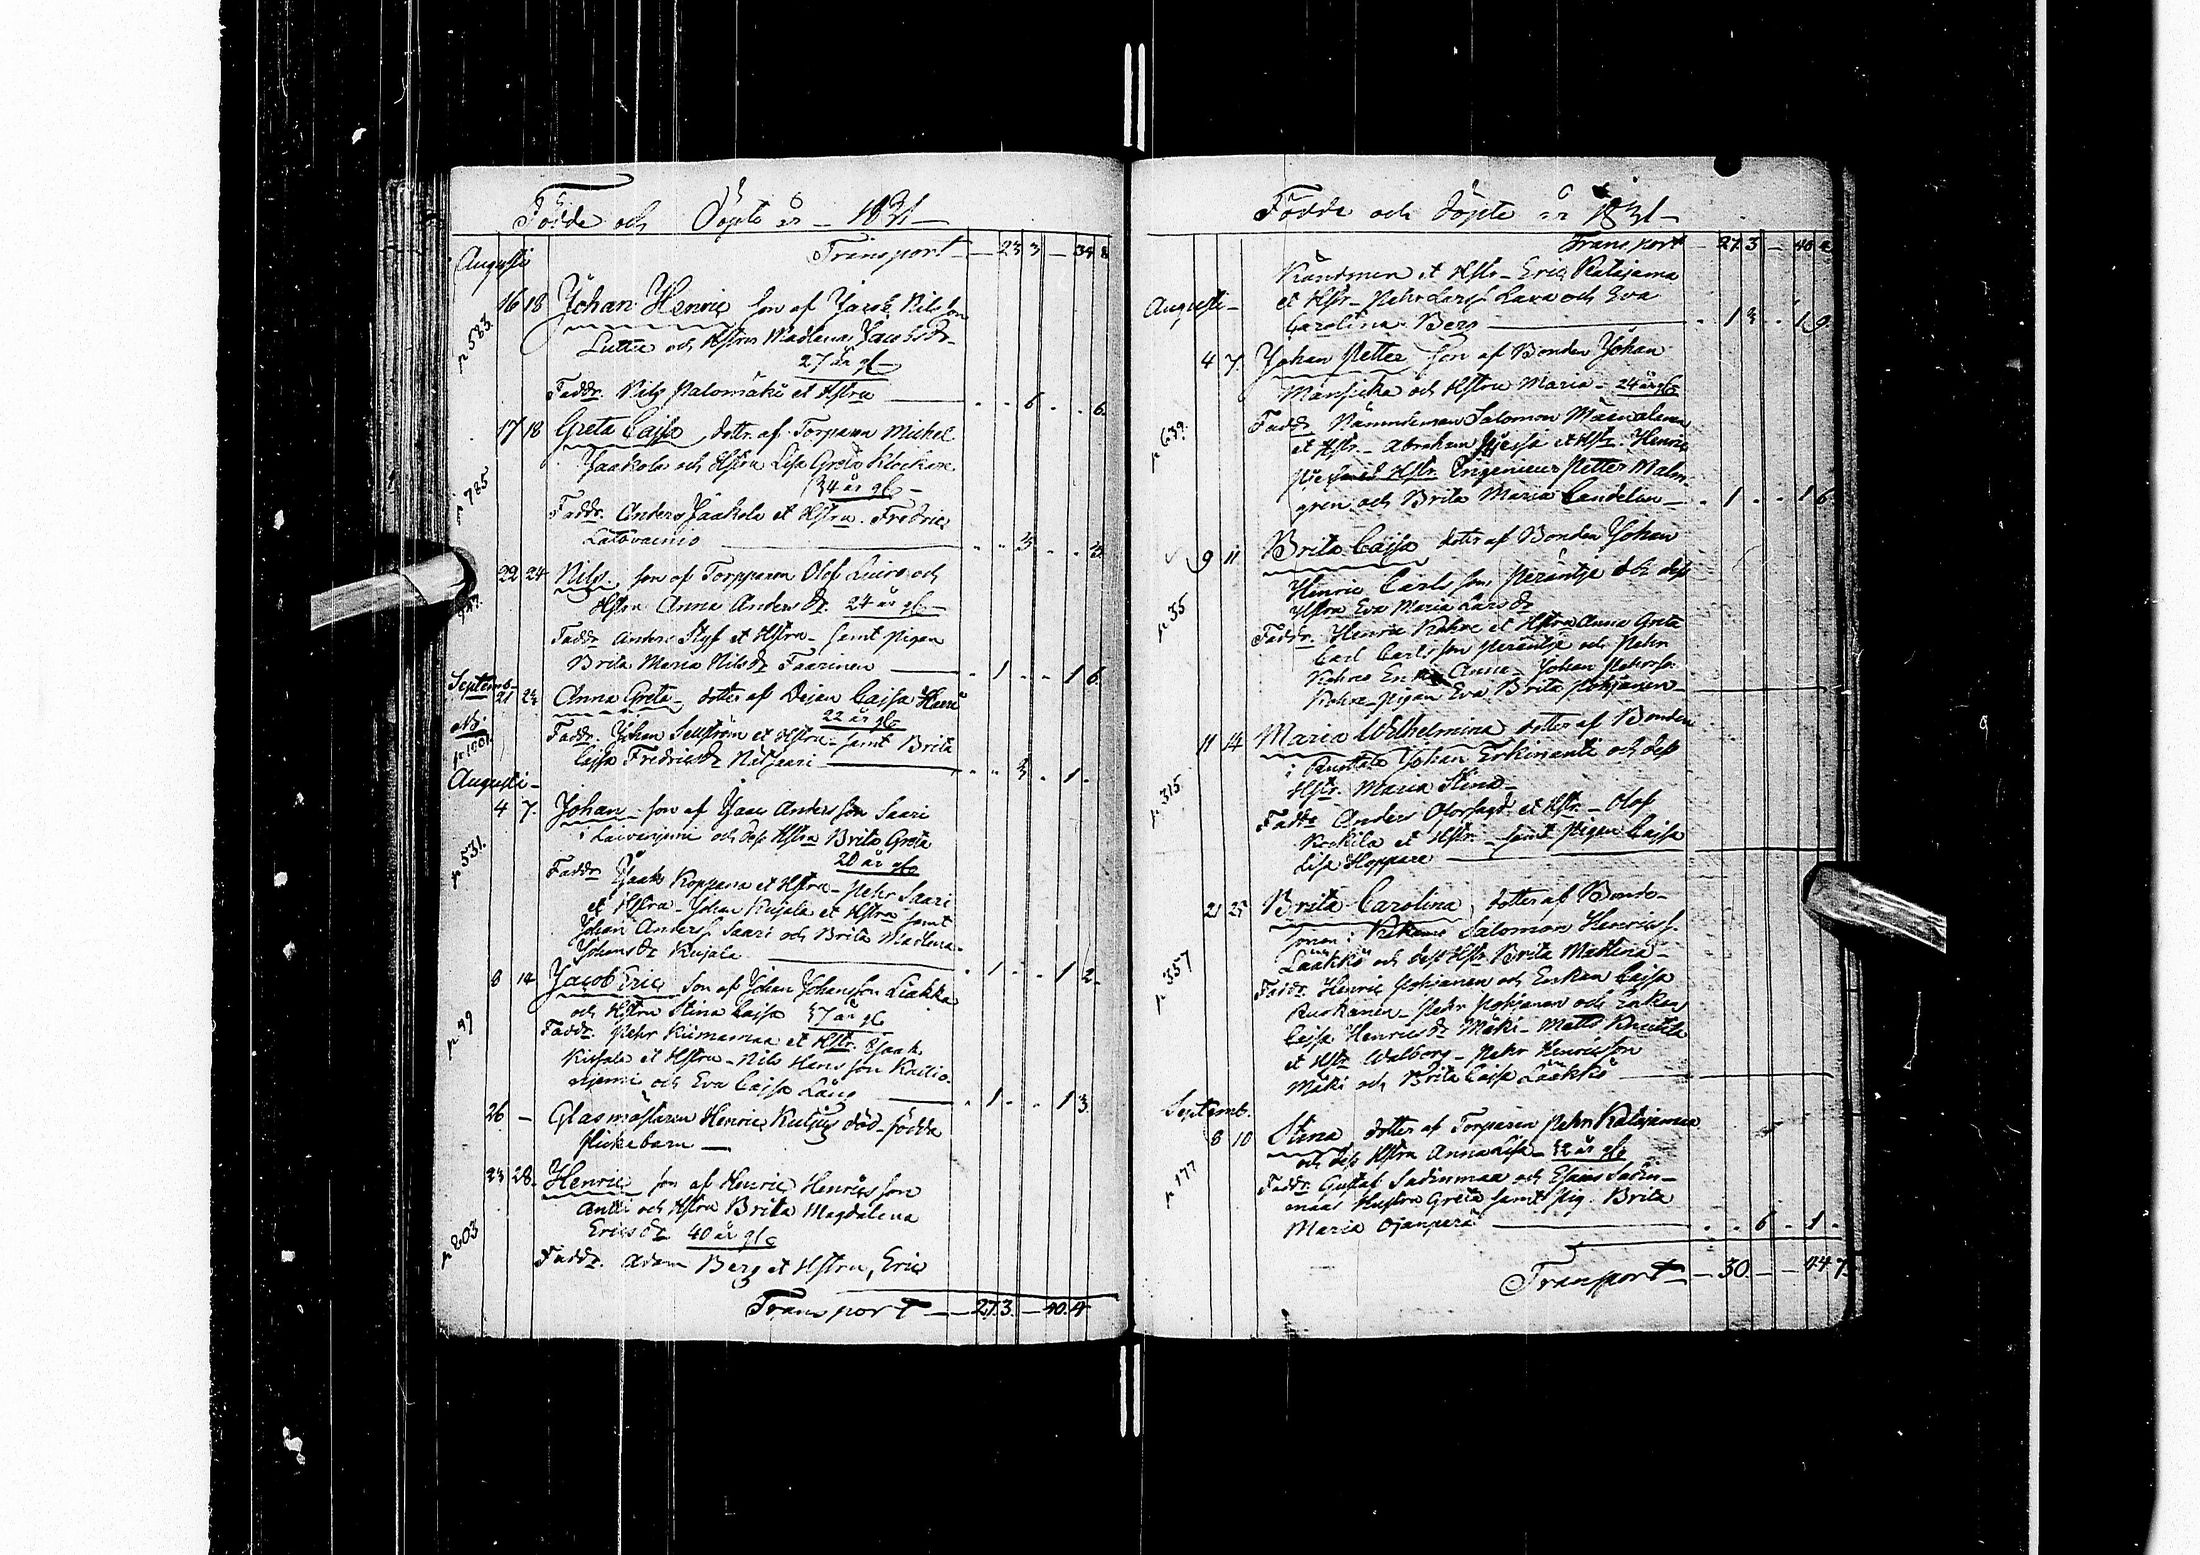 Födde och Döpte år - 1831 -
Augusti
Transport - 23 3 - 34 8
16 18 Johan Henric son af Jacob Nilsson
p 583.
och Hstru Madlena Jacobsdr
27 år gl -
Faddr. Nils Palomäki et Hstru - 6 - 6.
17 18 Greta Caisa dottr af Torparen Michel
p 785
Jaakola och Hstru Lisa Greta Klockare
34 år gl -
Faddr. Anders Jaakola et Hstru. Fredric
Latovainio - 3 - 3.
22 24 Nils. son af Torpparen Olof Luiro och
Hstru Anna Andersdr. 24 år gl -
Faddr Anders Styf et Hstru - samt pigan
Brita Maria Nilsdr Faarinen - 1 - 1 6
Septemb.
21 23 Anna Greta - dotter af Pigan Caisa
22 år gl
Nb.
Faddr. Johan Sellström et Hstru - samt Brita
Caisa Fredricsdr - 3 - 1 -
Augusti -
4 7. Johan - son af Isaac Andersson Saari
p 531.
och dess Hstru Brita Greta
20 år gl
Faddr Isaak Koppana et Hstru - Pehr Saari
et Hstru - Johan Kujala et Hstru samt
Johan Anderss. Saari och Brita Madlena
Johansdr Kujala - 1 - 1 2 -
8 14 Jacob Eric son af Johan Johansson Liakka
p 49
och Hstru Stina Caisa 37 år gl
Faddr. Pehr Kiimamaa et Hstr. Isaak
Kujala et Hstru - Nils Hansson
och Eva Caisa Lång - 1 - 1 3.
26 - Glasmästaren Henric död-födda
flickebarn -
23 28. Henric son af Henric Henricsson
p 203
Antti och Hstru Brita Magdalena
Ericsdr 40 år gl
Faddr. Adam Berg et Hstru, Eric
Transport - 27.3. - 40.4

Födde och döpte år 1831 -
Transport - 27 3 - 40 4
et Hstr - Eric Katajama
Augusti -
et Hstr - Pehr Larss. Lava och Eva
Carolina Berg - 1 3 - 1 9
4 7. Johan Petter son af Bonden Johan
Mansicka och Hstru Maria - 24 år gl
p 639.
Faddr. Nämndeman Salomon
et Hstr - Abraham et Hstr. Henric
samt Hstr. Ingenieur Petter Malm-
gren och Brita Maria Candelin - 1 - 1 6
9 11 Brita Caisa dotter af Bonden Johan
Henric Carlsson Peräntje och dess
p 35
Hstru Eva Maria Larsdr
Faddr. Henric et Hstru Anna Greta
Carl Carlsson Peräntje och Pehr
Anna - Johan Pehrss.
pigan Eva Brita Pohjanen -
11 14 Maria Wilhelmina dotter af Bonden
i Johan Erkinantti och dess
p 315
Hstr. Maria Stina -
Faddr Anders et Hstr. - Olof
et Hstr. - samt Pigan Caisa
Lisa Hoppare
21 25 Brita Carolina, dotter af Bonde-
sonen i Salomon Henricss.
Lääkkö och dess Hstr. Brita Mathina -
p 357
Faddr. Henric Pohjanen och Enkan Caisa
Ruokanen - Pehr Pohjanen och Enkan
Caisa Henricsdr Mäki - Matts
et Hstr Walborg - Pehr Henricsson
Mäki och Brita Caisa Lääkkö
Septemb.
8 10 Stina, dotter af Torparen Pehr Katajamaa
och dess Hstru Anna Lisa - 32 år gl
p 177
Faddr. Gustaf Sadinmaa och Esaias Sadin-
maas Hustru Greta samt pig. Brita
Maria Ojanperä - 6 - 1 -
Transport - 30. - 44 7.